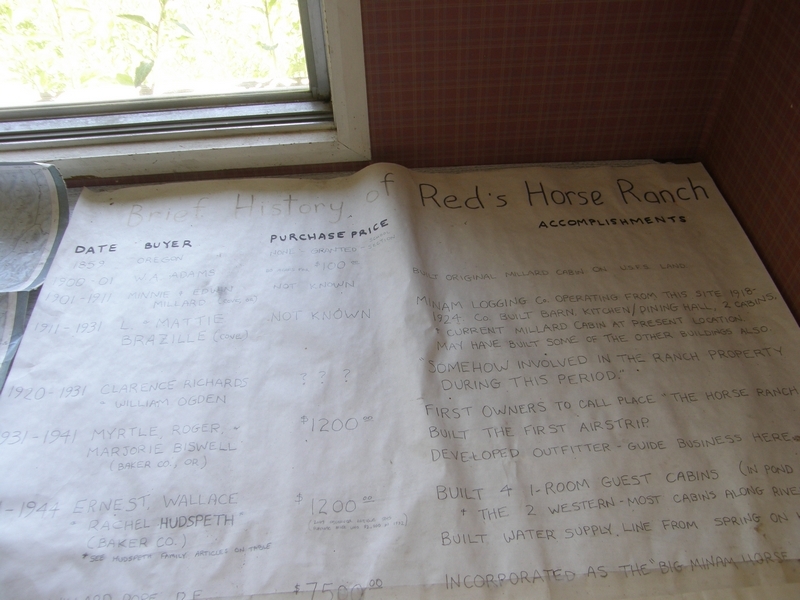 Brief History of Red's Horse Ranch
DATE BUYER PURCHASE PRICE ACCOMPLISHMENTS
1859 OREGON NONE
1900-01 W.A. ADAMS $100
1901-1911 MINNIE & EDWIN MILLARD NOT KNOWN
BUILT ORIGINAL MILLARD CABIN ON USFS LAND
1911-1931 L. & MATTIE BRAZILLE NOT KNOWN
MINAM LOGGING Co. OPERATING FROM THIS SITE 1918-
1924. Co. BUILT BARN, KITCHEN/DINING HALL, 2 CABINS,
& CURRENT MILLARD CABIN AT PRESENT LOCATION.
MAY HAVE BUILT SOME OF THE OTHER BUILDINGS ALSO.
1920-1931 CLARENCE RICHARDS
& WILLIAM OGDEN
? ? ?
"SOMEHOW INVOLVED IN THE RANCH PROPERTY
DURING THIS PERIOD."
931-1941 MYRTLE, ROGER, &
MARJORIE BISWELL
(BAKER CO., OR)
$1200.00
FIRST OWNERS TO CALL PLACE "THE HORSE RANCH
BUILT THE FIRST AIRSTRIP
DEVELOPED OUTFITTER-GUIDE BUSINESS HERE
-1944 ERNEST, WALLACE
& RACHEL HUDSPETH
(BAKER CO.)
* SEE HUDSPETH FAMILY ARTICLES ON TABLE
$1200.00
BUILT 4 1-ROOM GUEST CABINS (IN POND
& THE 2 WESTERN-MOST CABINS ALONG RIVE
BUILT WATER SUPPLY LINE FROM SPRING ON
$7500.00
INCORPORATED AS THE "BIG MINAM HORSE